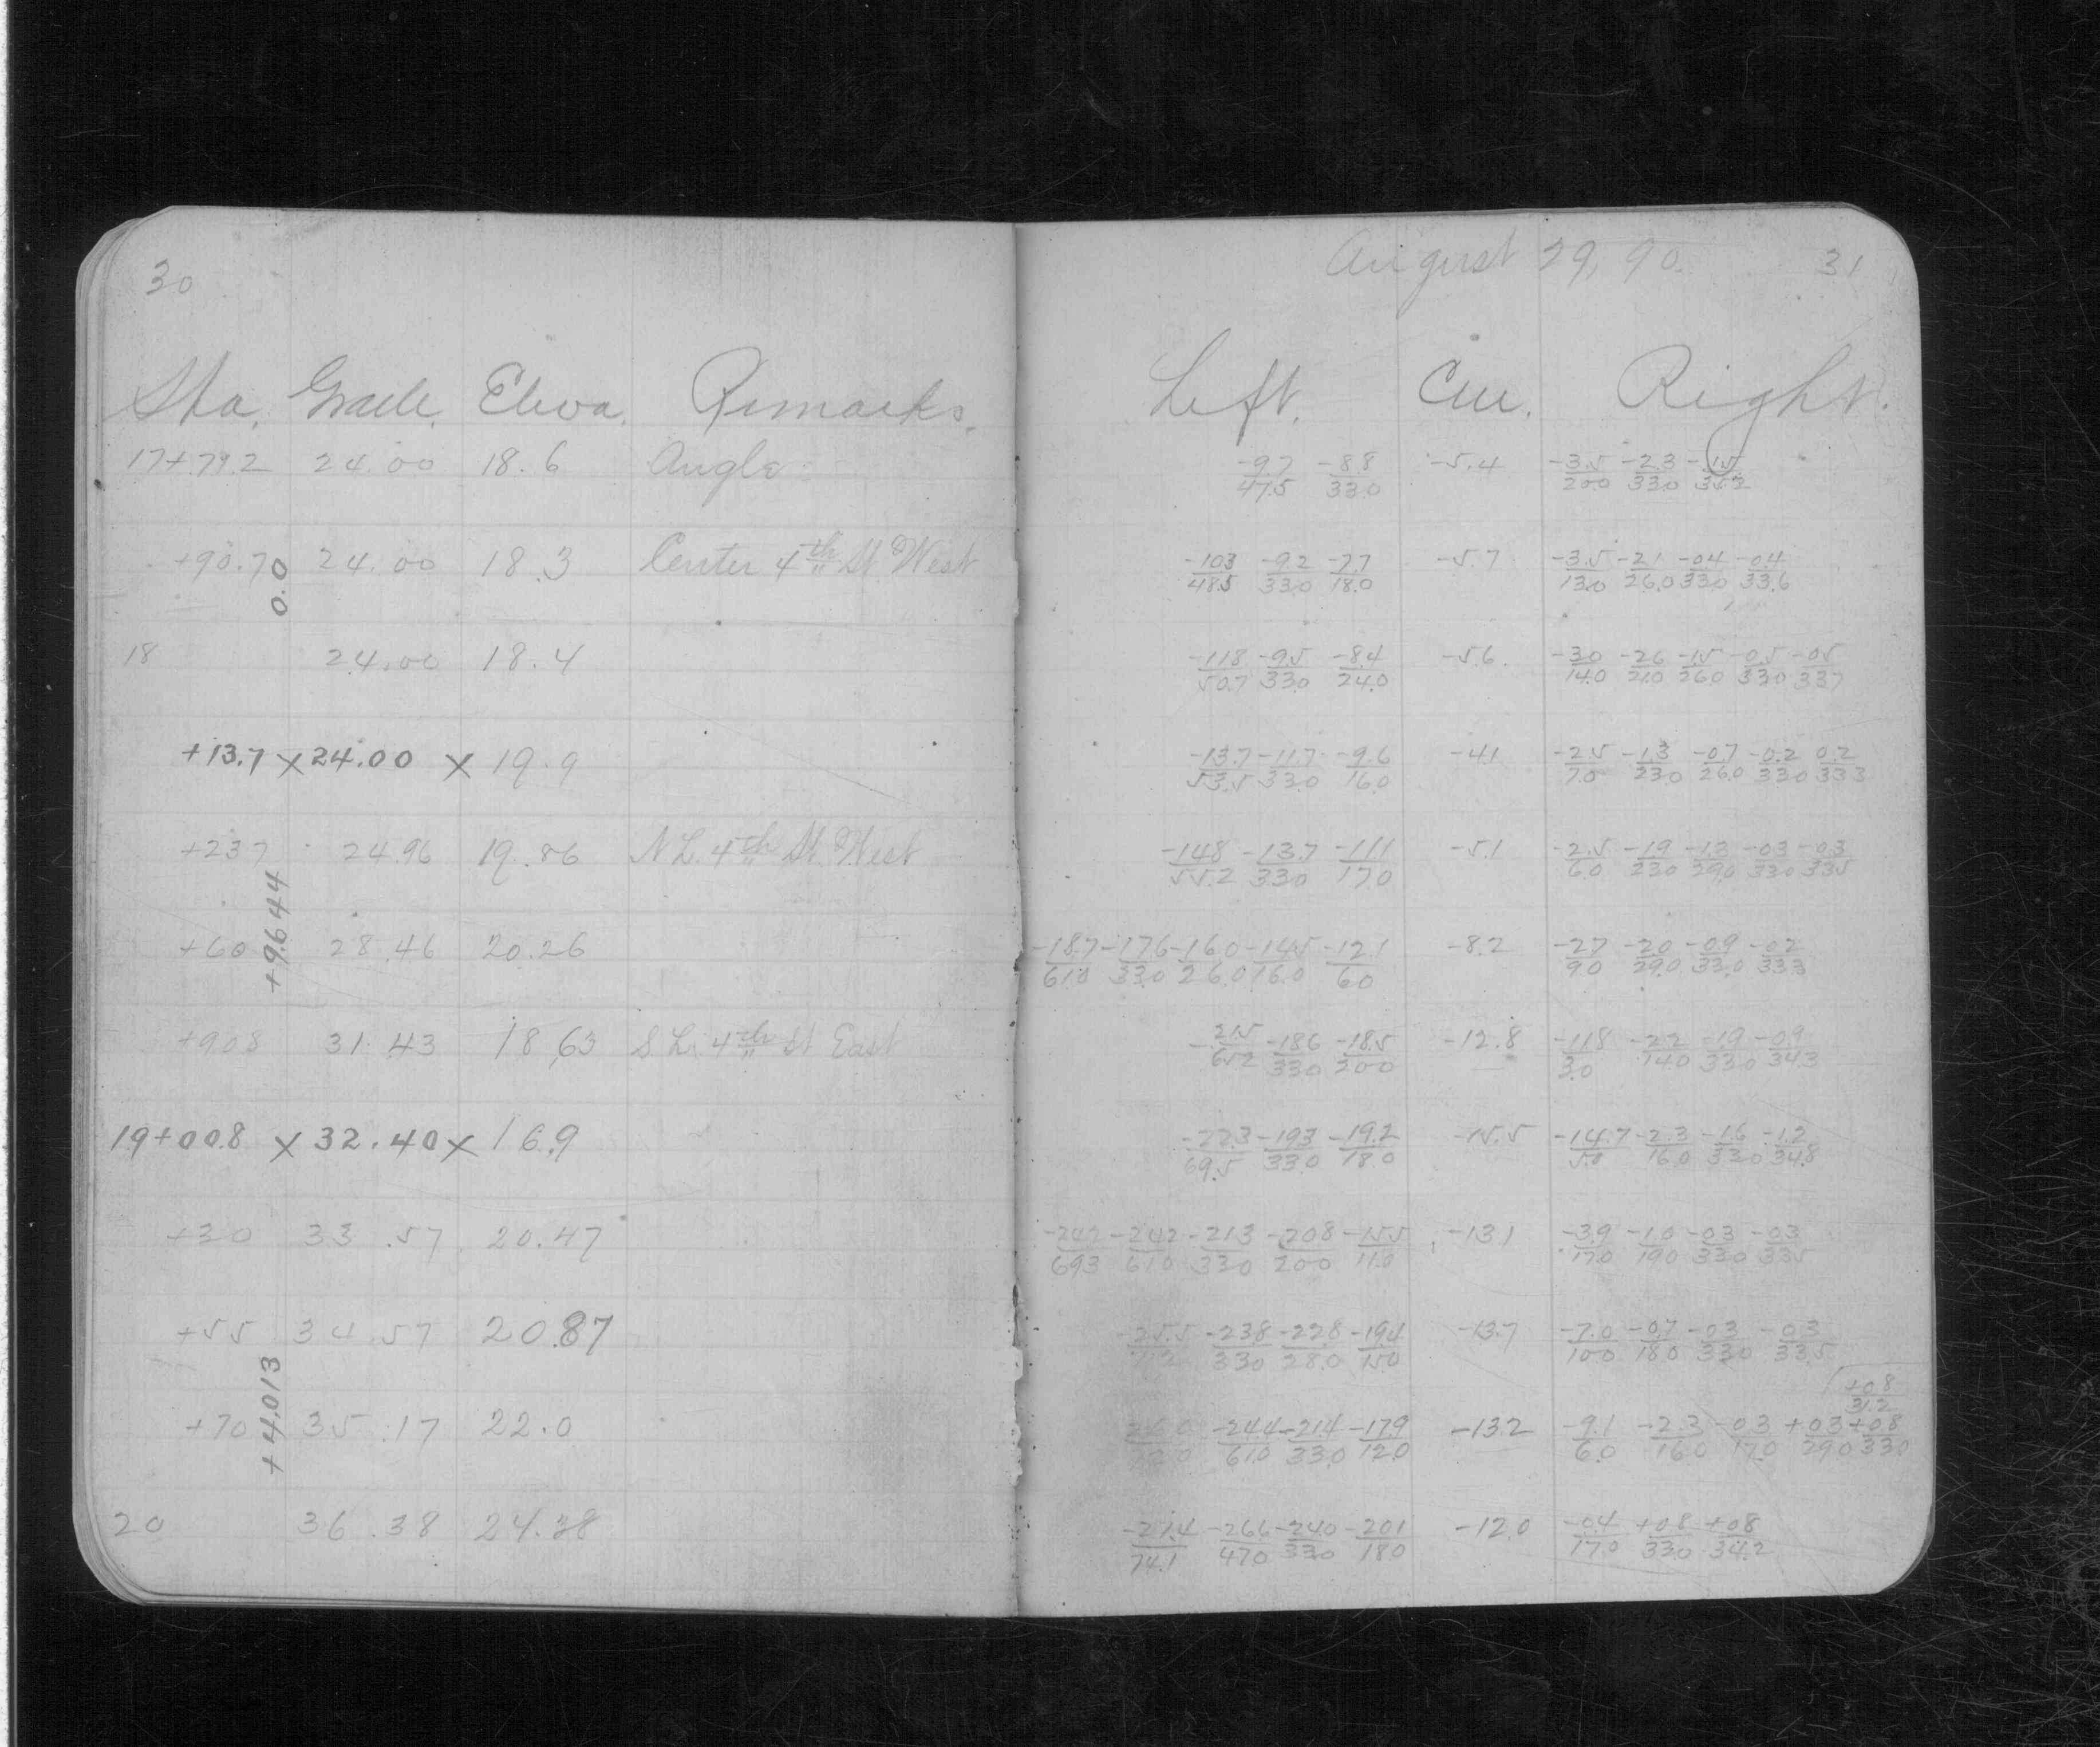 30
Sta. Grade. Eleva. Remarks.
17+79.2 24.00 18.6 Angle
+90.70 24.00 18.3 Center 4th St. West
0.0
18 24.00 18.4
+13.7 x 24.00 x 19.9
+23.7 24.96 19.86 N.L. 4th St. West
+9.644
+60 28.46 20.26
+90.8 31.43 18.63 S.L. 4th St East
19+00.8 x 32.40 x 16.9
+30 33.57 20.47
+55 34.57 20.87
+4.013
+70 35.17 22.0
20 36.38 24.38
August 29, 90. 31
Left. Cen. Right.
-9.7 -8.8 -5.4 -3.5 -2.3 -1.5
47.5 33.0 20.0 33.0 35.2
-10.3 -9.2 -7.7 -5.7 -3.5 -2.1 -0.4 -0.4
48.5 33.0 18.0 13.0 26.0 33.0 33.6
-11.8 -9.5 -8.4 -5.6 -3.0 -2.6 -1.5 -0.5 -0.5
50.7 33.0 24.0 14.0 21.0 26.0 33.0 33.7
-13.7 -11.7 -9.6 -4.1 -2.5 -1.3 -0.7 -0.2 0.2
53.5 33.0 16.0 7.0 23.0 26.0 33.0 33.3
-14.8 -13.7 -11.1 -5.1 -2.5 -1.9 -1.3 -0.3 -0.3
55.2 33.0 17.0 6.0 23.0 29.0 33.0 33.5
-18.7 -17.6 -16.0 -14.5 -12.1 -8.2 -2.7 -2.0 -0.9 -0.2
61.0 33.0 26.0 16.0 6.0 9.0 29.0 33.0 33.3
-21.5 -18.6 -18.5 -12.8 -11.8 -2.2 -1.9 -0.9
65.2 33.0 20.0 3.0 14.0 33.0 34.3
-22.3 -19.3 -19.2 -15.5 -14.7 -2.3 -1.6 -1.2
69.5 33.0 18.0 5.0 16.0 33.0 34.8
-24.2 -24.2 -21.3 -20.8 -15.5 -13.1 -3.9 -1.0 -0.3 -0.3
69.3 61.0 33.0 20.0 11.0 17.0 19.0 33.0 33.5
-25.5 -23.8 -22.8 -19.4 -13.7 -7.0 -0.7 -0.3 -0.3
33.0 28.0 15.0 10.0 18.0 33.0 33.5
+0.8
31.2
-24.4 -21.4 -17.9 -13.2 -9.1 -2.3 -0.3 +0.3 +0.8
61.0 33.0 12.0 6.0 16.0 17.0 29.0 33.0
-27.4 -26.6 -24.0 -20.1 -12.0 -0.4 +0.8 +0.8
74.1 47.0 33.0 18.0 17.0 33.0 34.2